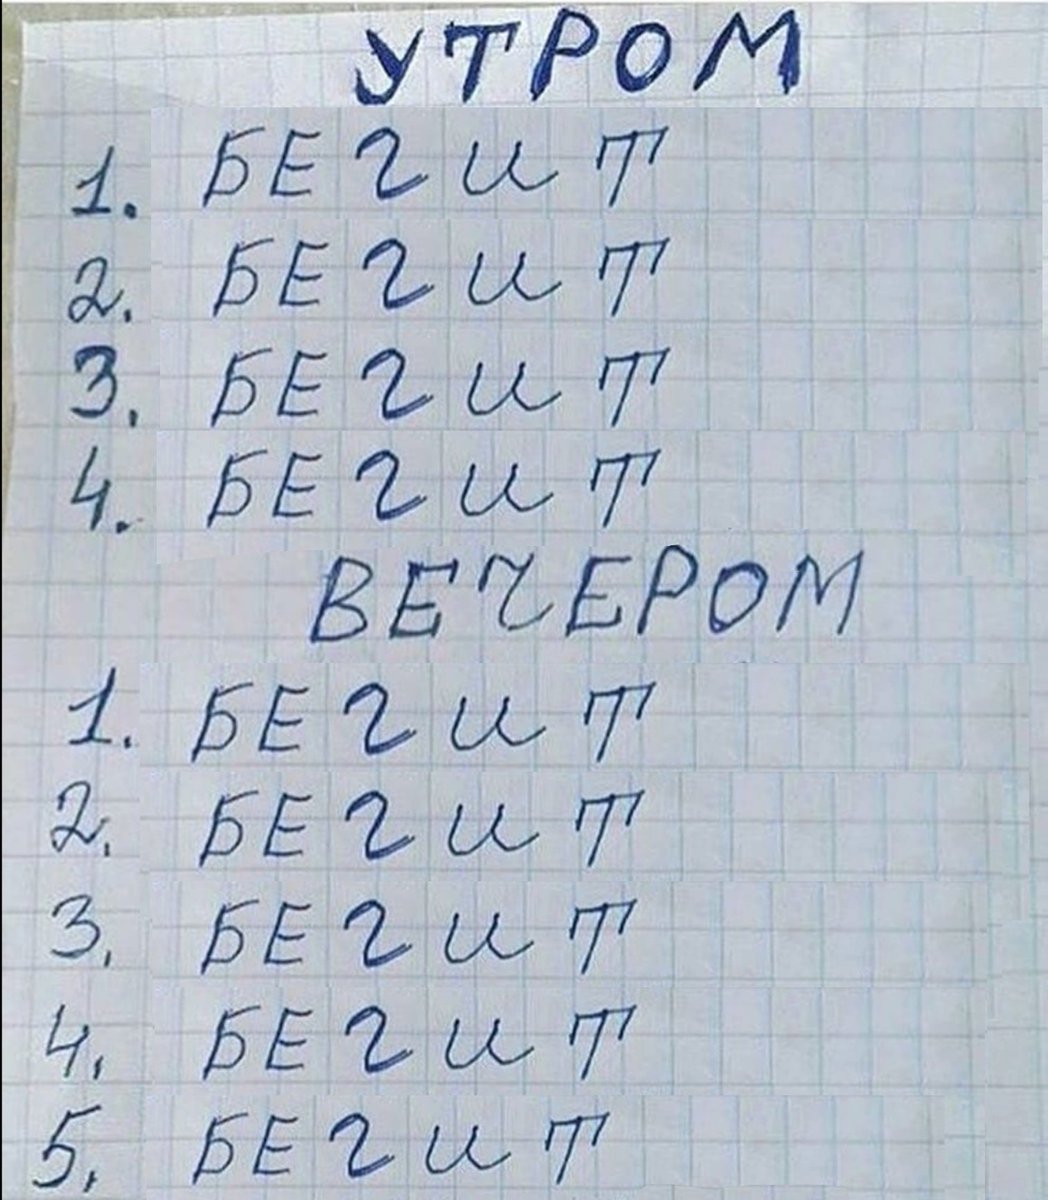 УТРОМ
1. БЕГИТ
2. БЕГИТ
3. БЕГИТ
4. БЕГИТ
ВЕЧЕРОМ
1. БЕГИТ
2. БЕГИТ
3. БЕГИТ
4. БЕГИТ
5. БЕГИТ